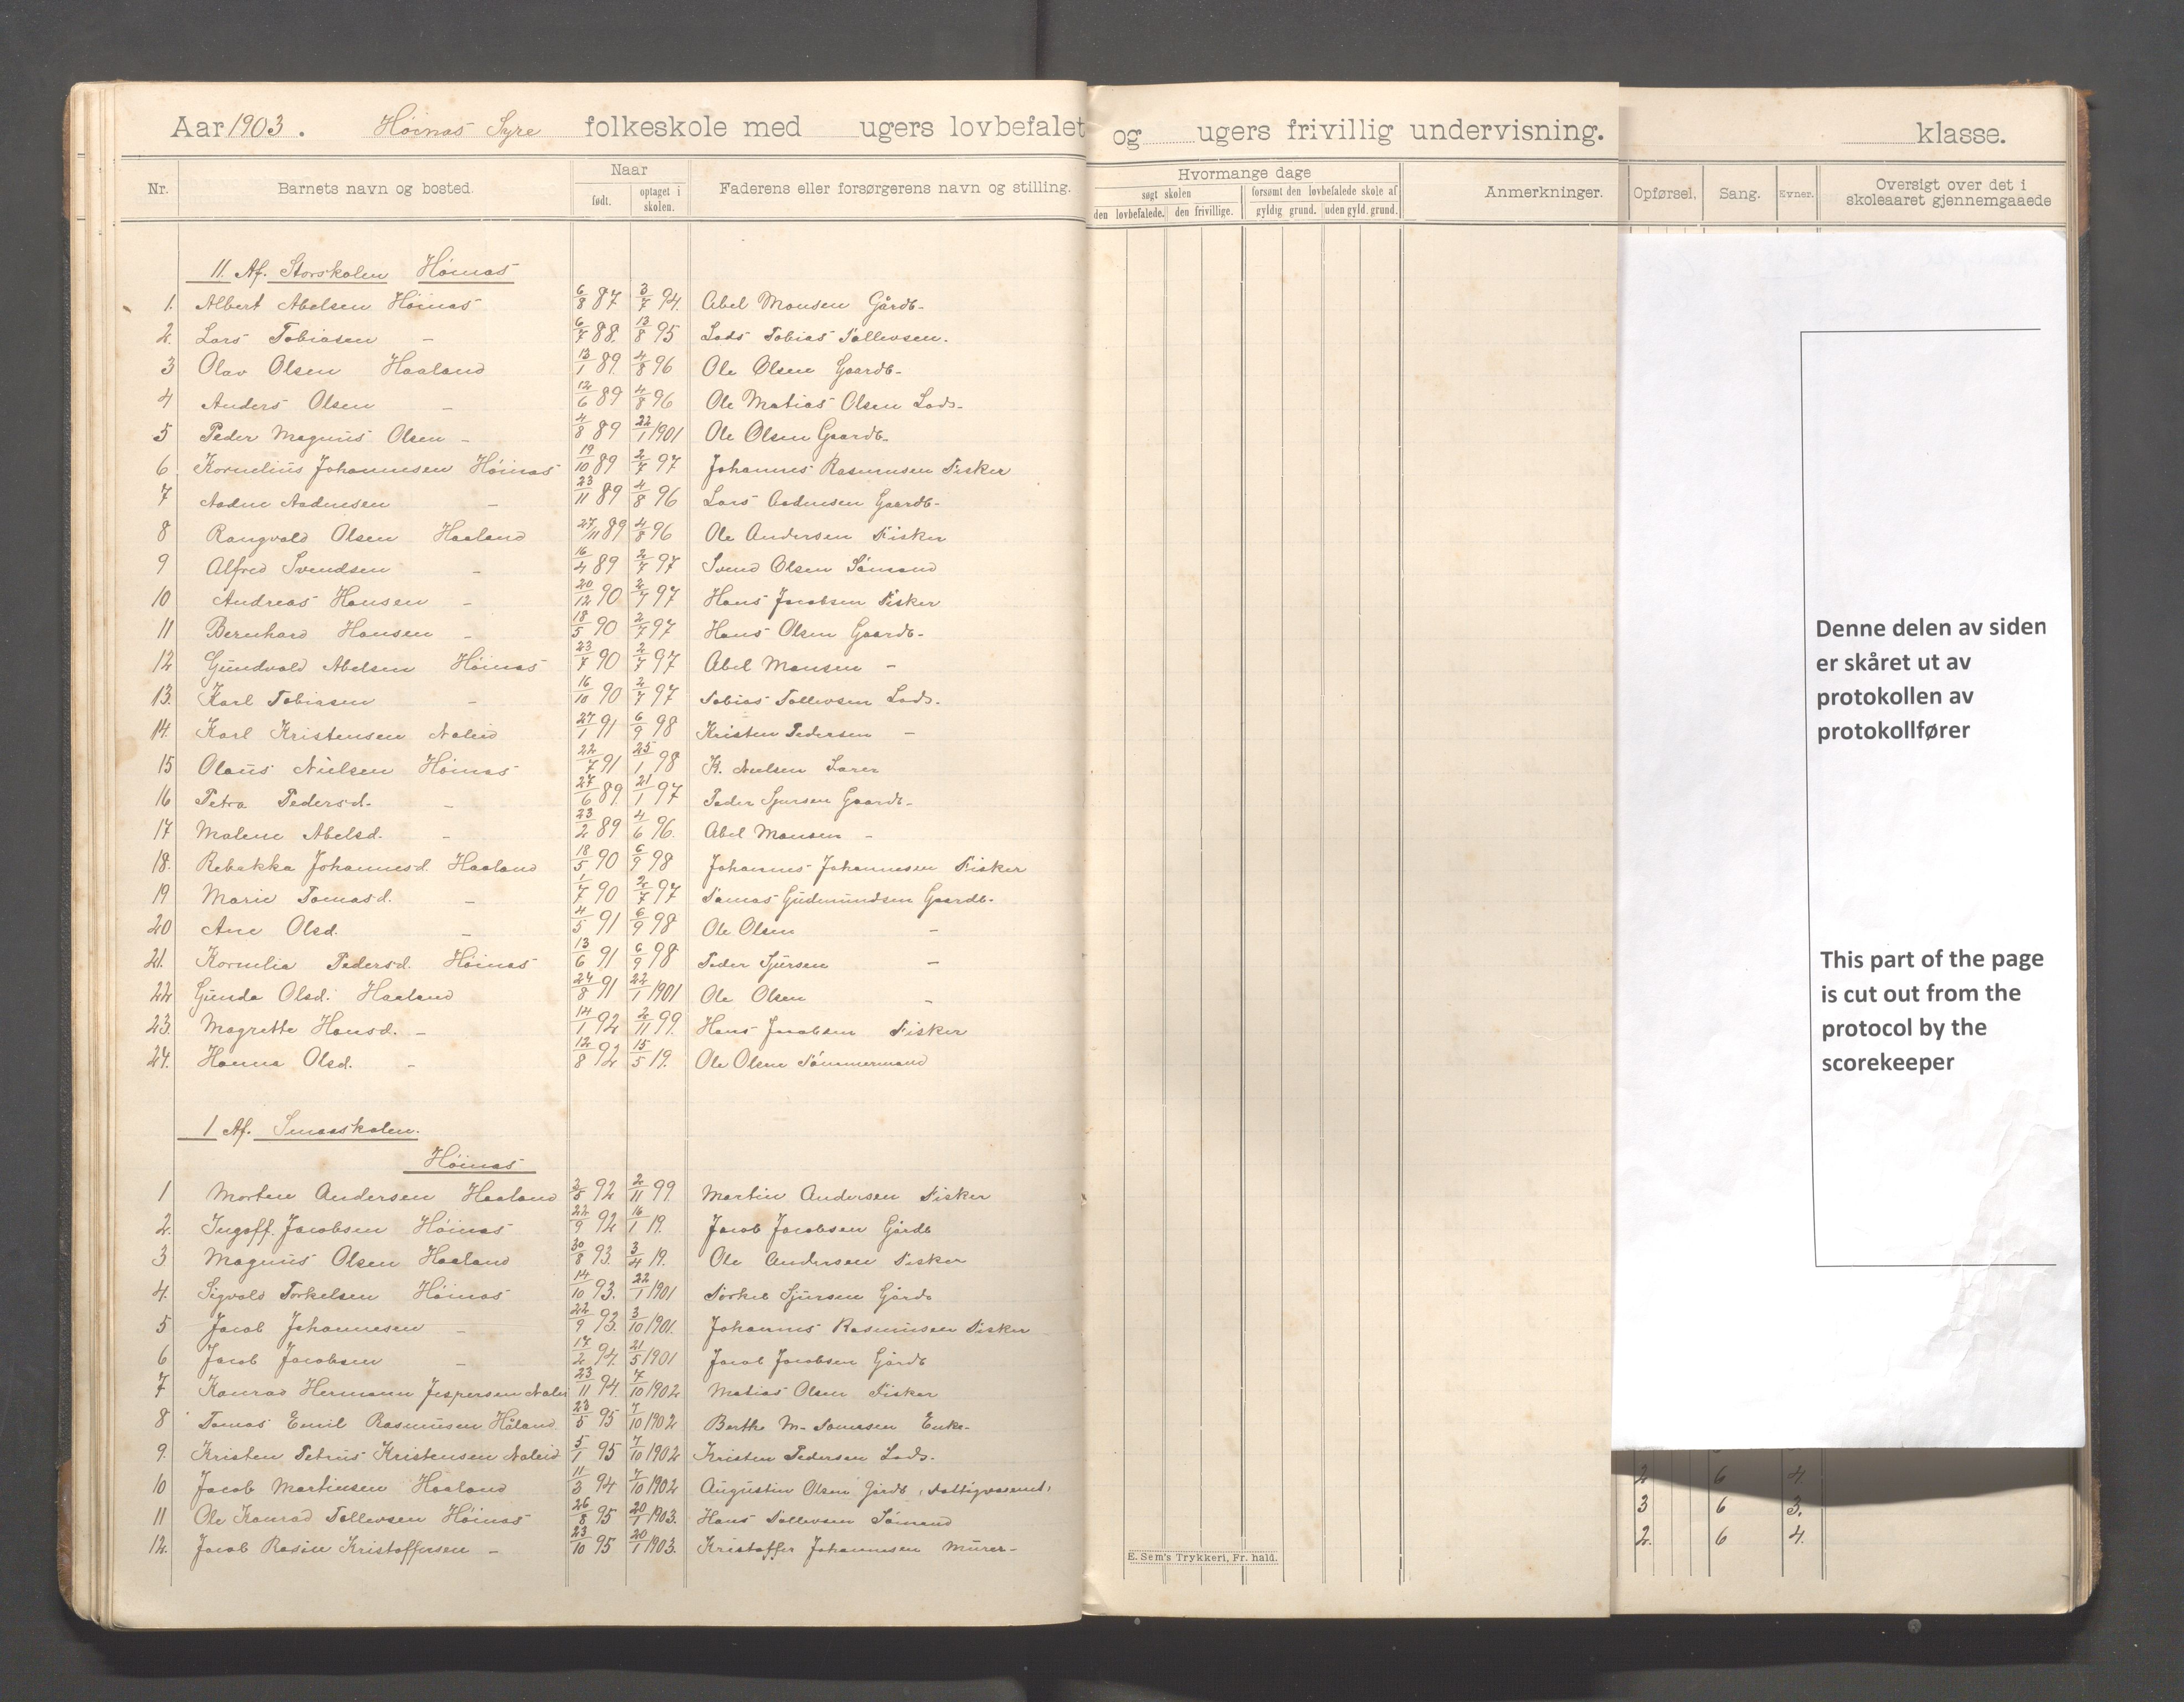 Aar 1903. Høinas Syre folkeskole med ugers lovbefalet og ugers frivillig undervisning. klasse.
Nr. Barnets navn og bosted. Naar født. optaget i skolen. Faderens eller forsørgerens navn og stilling. Hvormange dage søgt skolen den lovbefalede. den frivillige. forsømt den lovbefalede skole af gyldig grund. uden gyld. grund. Anmerkninger. Opførsel. Sang. Evner. Oversigt over det i skoleaaret gjennemgaaede
11. Af. Storskolen Høinas
1. Albert Abelsen Høinas 6/8 87 3/7 94. Abel Monsen Gårdb-
2. Lars Tobiasen - 6/7 88. 13/8 95 Lods Tobias Tollevsen.
3 Olav Olsen Haaland 13/1 89. 4/8 96 Ole Olsen Gaardb-
4 Anders Olsen - 12/6 89 4/8 96 Ole Matias Olsen Lods-
5 Peder Magnus Olsen - 4/8 89 22/1 1901 Ole Olsen Gaardb-
6 Kornelius Johannesen Høinas 19/10 89 2/7 97 Johannes Rasmussen Fisker
7 Aadne Aadnesen - 23/11 89 4/8 96 Lars Aadnesen Gaardb-
8 Rangvald Olsen Haaland 27/11 89 4/8 96 Ole Andersen Fisker
9 Alfred Svendsen - 16/4 89 2/7 97 Svend Olsen Sømand
10 Andreas Hansen - 20/12 90 2/7 97 Hans Jacobsen Fisker
11 Bernhard Hansen - 18/5 90 2/7 97 Hans Olsen Gaardb-
12 Gundvald Abelsen Høinas 23/7 90 2/7 97 Abel Monsen -
13. Karl Tobiasen - 16/10 90 2/7 97 Tobias Tollevsen Lods.
14. Karl Kristensen Naleid 27/1 91 6/9 98 Kristen Pedersen -
15 Olaus Nielsen Høinas 22/7 91 25/1 98 K. Nielsen Lærer
16 Petra Pedersd. - 27/6 89. 21/1 97 Peder Sjursen Gaardb-
17 Malene Abelsd. - 23/2 89 4/6 96. Abel Monsen -
18. Rebekka Johannesd. Haaland 18/5 90 6/9 98 Johannes Johannesen Fisker
19 Marie Tomasd. - 1/7 90 2/7 97 Tomas Gudmundsen Gaardb-
20 Ane Olsd. - 4/5 91 6/9 98 Ole Olsen -
21. Kornelia Pedersd. Høinas 13/6 91 6/9 98 Peder Sjursen -
22 Gunda Olsd. Haaland 24/8 91 22/1 1901 Ole Olsen -
23. Magrette Hansd. - 14/1 92 2/11 99. Hans Jacobsen Fisker
24. Hanna Olsd. - 12/8 92 15/5 19. Ole Olsen Tømmermand
1 Af. Smaaskolen.
Høinas
1 Morten Andersen Haaland 2/8 92 2/11 99. Martin Andersen Fisker
2. Ingolf. Jacobsen Høinas 22/9 92 16/1 19. Jacob Jacobsen Gårdb
3 Magnus Olsen Haaland 30/8 93. 3/4 19. Ole Andersen Fisker
4. Sigvald Torkelsen Høinas 14/10 93. 22/1 1901 Torkel Sjursen Gårdb
5 Jacob Johannesen - 22/9 93. 3/10 1901. Johannes Rasmussen Fisker
6 Jacob Jacobsen - 17/2 94. 21/5 1901 Jacob Jacobsen Gårdb
7 Konrad Hermann Jespersen Nalei 23/11 94. 7/10 1902 Matias Olsen Fisker
8 Tomas Emil Rasmussen Håland 23/5 95 7/10 1902 Berthe M. Tomasen Enke-
9. Kristen Petrus Kristensen Naleid 5/1 95 7/10 1902 Kristen Pedersen Lods.
10 Jacob Martinsen Haaland 11/3 94 7/10 1902 Augustin Olsen Gårdb (Fattigvæsenet)
11 Ole Konrad Tollevsen Høinas 26/8 95 20/1 1903. Hans Tollevsen Sømand
12. Jacob Rasin Kristoffersen - 23/10 95 20/1 1903. Kristoffer Johannesen Murer-
E. Sem's Trykkeri, Fr. hald.
Denne delen av siden
er skåret ut av
protokollen av
protokollfører
This part of the page
is cut out from the
protocol by the
scorekeeper
2 6 4.
3 6 3.
2. 6 4.